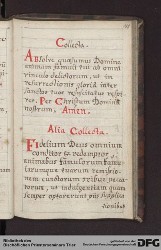 Collecta.
Absolve quæsumus Domine
animam famuli tui ab omni
vinculo delictorum, ut in
resurrectionis gloria inter
sanctos tuos resuscitatus respi
ret. Per Christum Dominum
nostrum. Amen.
Alia Collecta.
Fidelium Deus omnium
conditor & redemptor,
animabus famulorum famu
larumque tuarum remissio
nem cunctorum tribue pecca
torum, ut indulgentiam quam
semper optaverunt piis
Bibliothek des
Bischöflichen Priesterseminars Trier
DFG